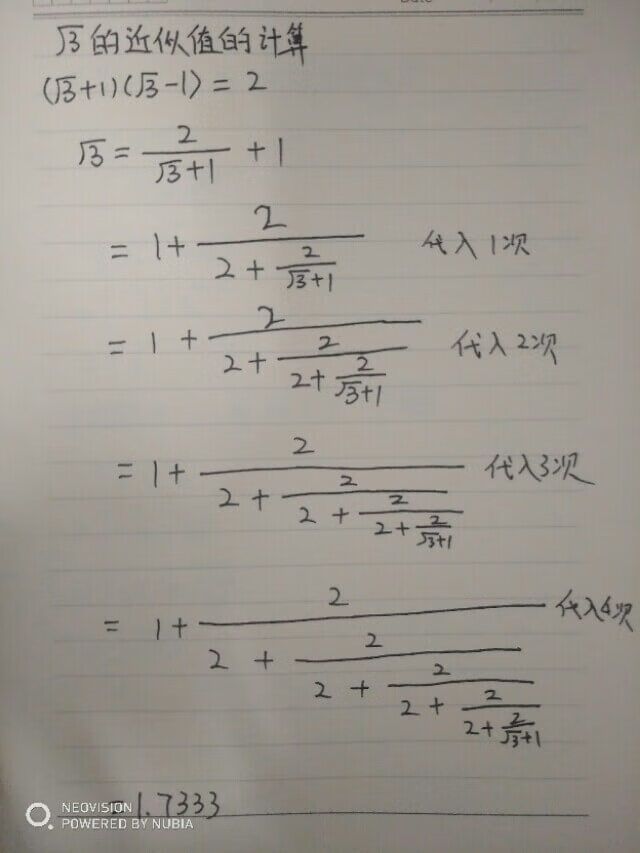 √3的近似值的计算
(√3+1)(√3-1) = 2
√3 = 2/(√3+1) + 1
= 1 + 2/(2 + 2/(√3+1)) 代入1次
= 1 + 2/(2 + 2/(2 + 2/(√3+1))) 代入2次
= 1 + 2/(2 + 2/(2 + 2/(2 + 2/(√3+1)))) 代入3次
= 1 + 2/(2 + 2/(2 + 2/(2 + 2/(2 + 2/(√3+1))))) 代入4次
=1.7333
NEOVISION
POWERED BY NUBIA